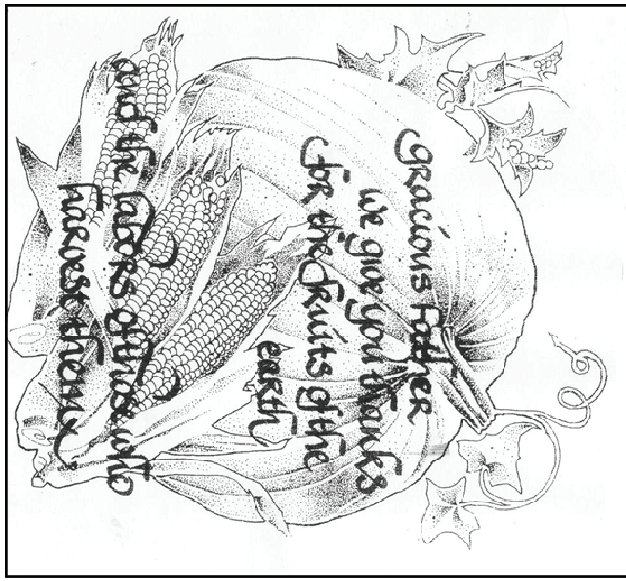 Gracious Father
we give you thanks
for the fruits of the
earth
and the labors of those who
harvest them.